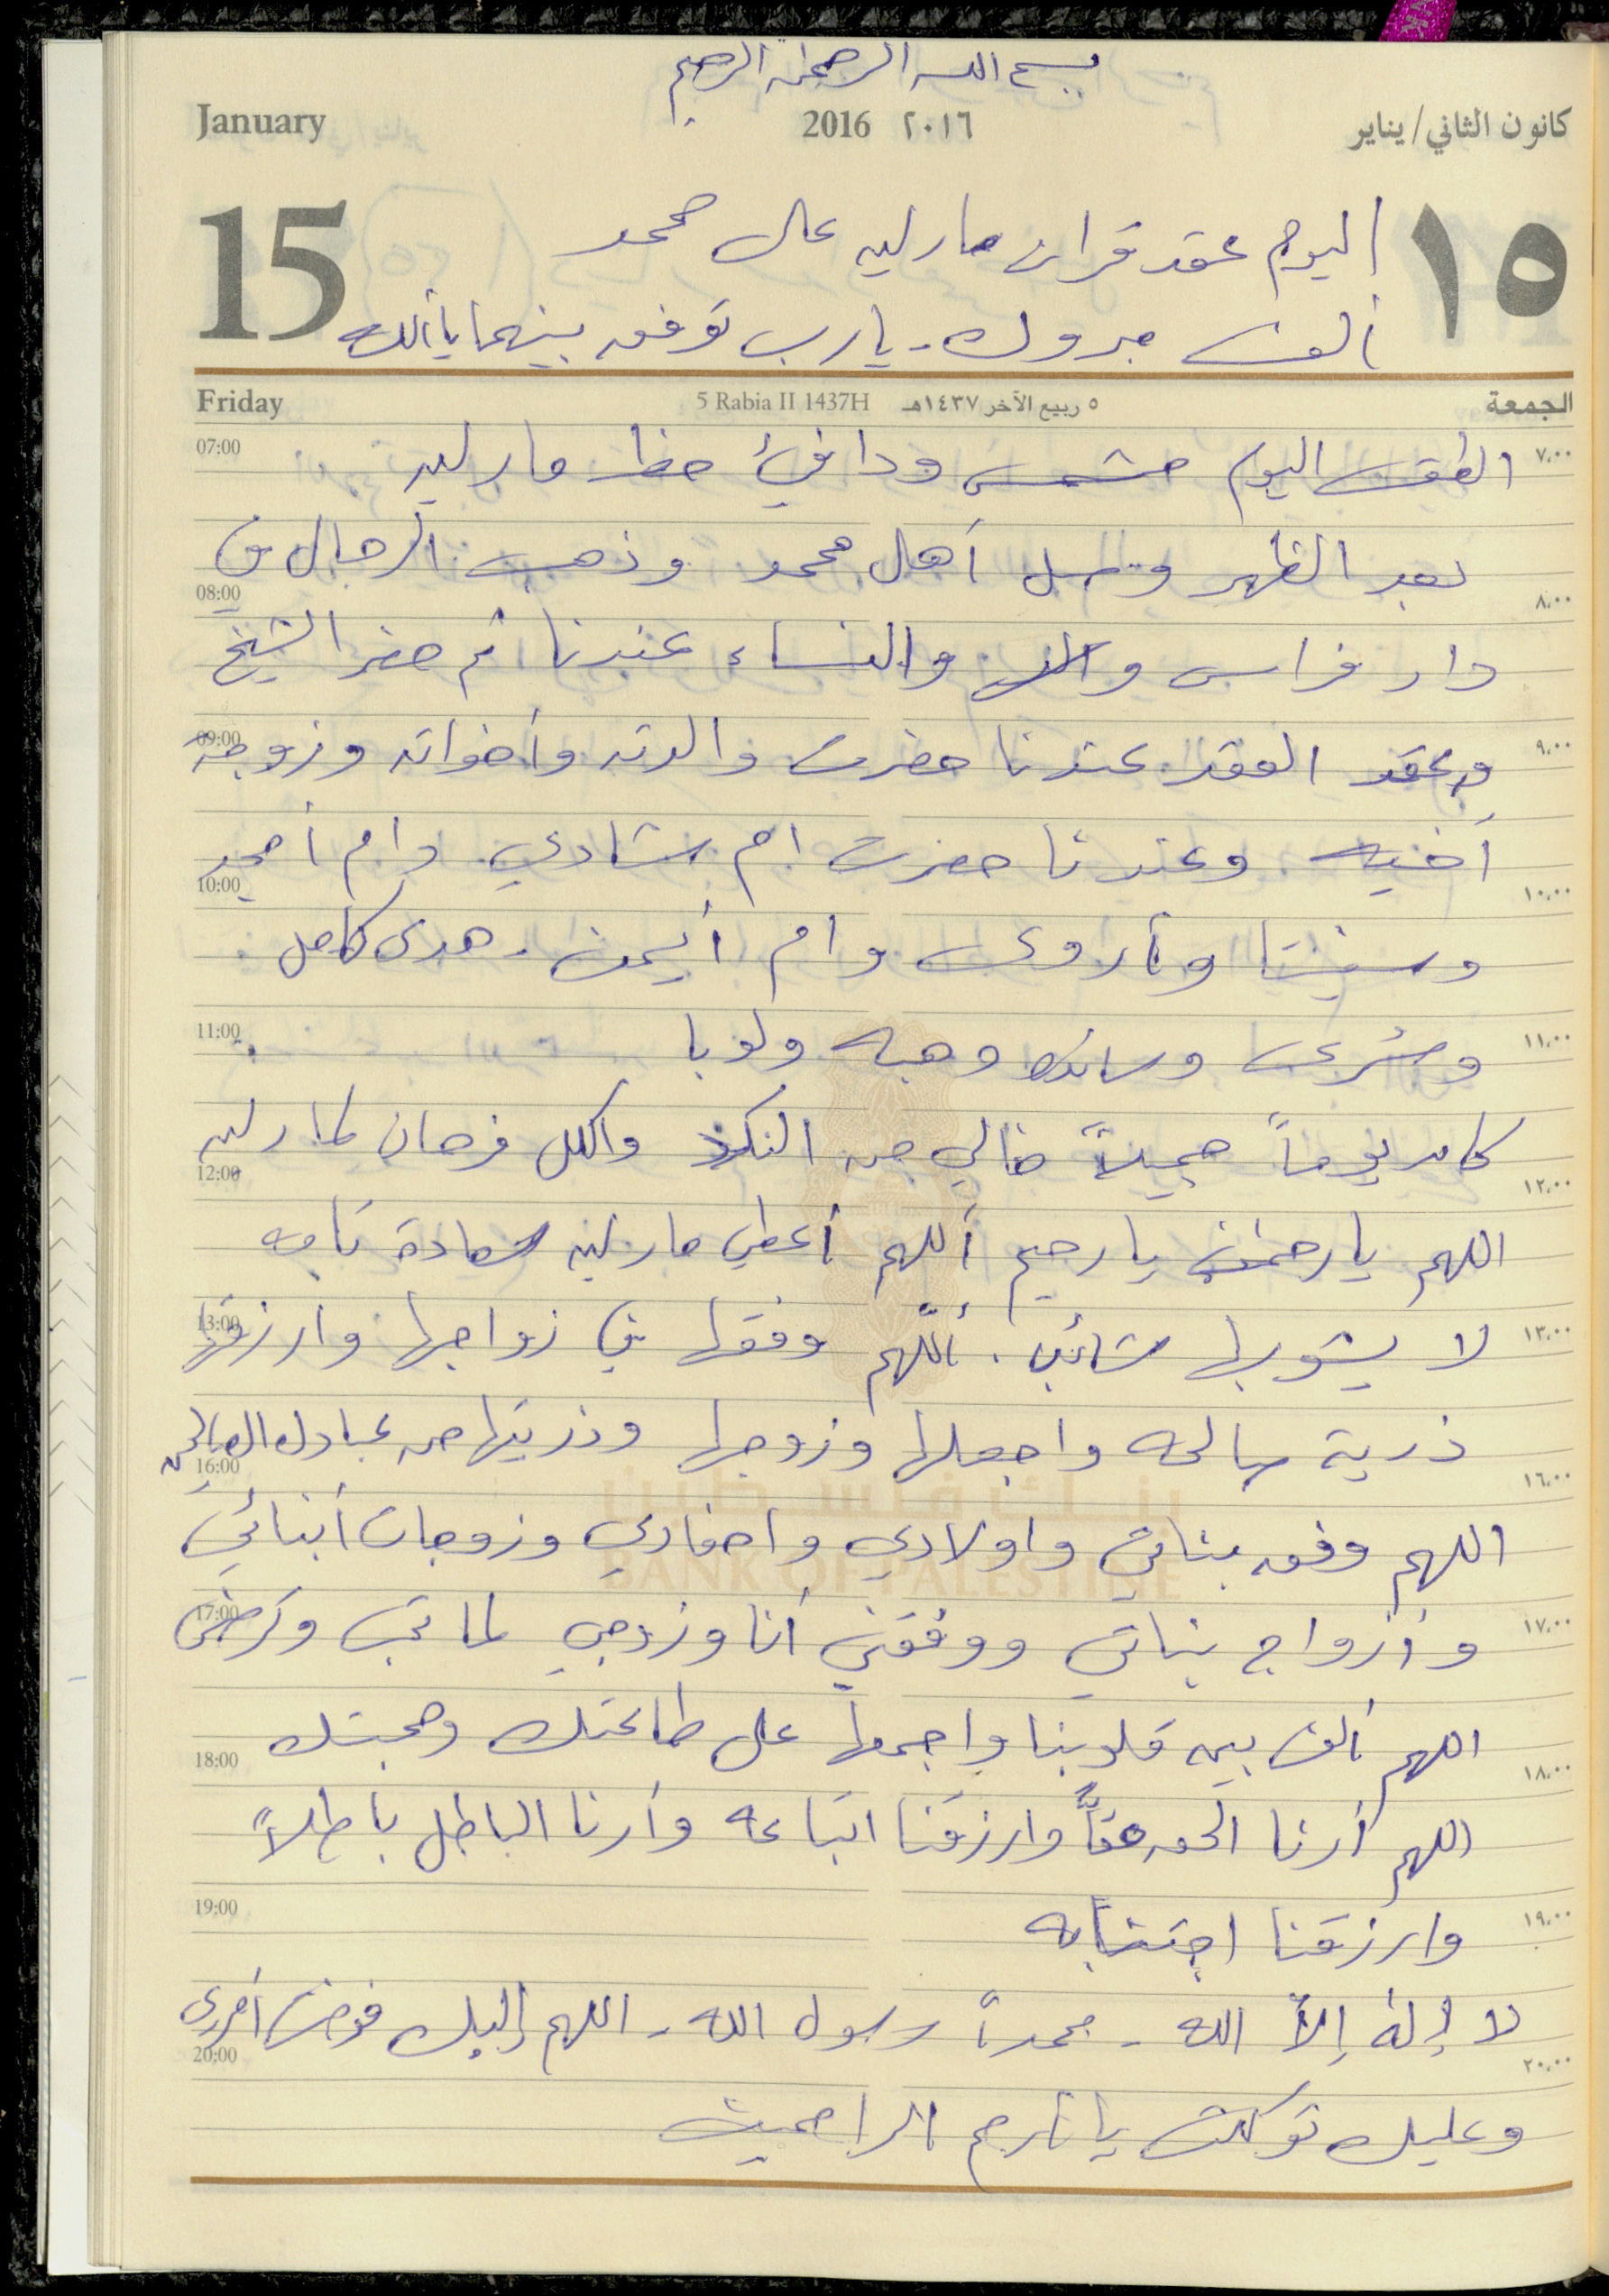 بسم الله الرحمن الرحيم
January 2016 ٢٠١٦ كانون الثاني/يناير
15 ١٥
اليوم عقد قران مارلين على محمد
ألف مبروك - يارب توفق بينهما ياألله
Friday 5 Rabia II 1437H ٥ ربيع الآخر ١٤٣٧هـ الجمعة
07:00 ٧،٠٠
الطقس اليوم مشمس ودافئ حظ مارلين
بعد الظهر وصل أهل محمد وذهب الرجال في
08:00 ٨،٠٠
دار فراس والنساء عندنا ثم حضر الشيخ
09:00 ٩،٠٠
وعقد العقد عندنا حضرت والدته وأخواته وزوجة
أخيه وعندنا حضرت ام شادي وام أمجد
10:00 ١٠،٠٠
وأروى وام أيمن - هدى كامل
11:00 ١١،٠٠
وهبه ولوبا
كان يوماً جميلاً خالي من النكد والكل فرحان لمارلين
12:00 ١٢،٠٠
اللهم يارحمن يارحيم أللهم أعطي مارلين سعادة تامه
13:00 ١٣،٠٠
لا يشوبها شائب . أللّهم وفقها في زواجها وارزقها
ذرية صالحه واجعلها وزوجها وذريتها من عبادك الصالحين
16:00 ١٦،٠٠
بنك فلسطين
BANK OF PALESTINE
اللهم وفق بناتي واولادي واحفادي وزوجات أبنائي
17:00 ١٧،٠٠
وأزواج بناتي ووفقني أنا وزوجي لما تحب وترضى
اللهم ألف بين قلوبنا واجمعها على طاعتك ومحبتك
18:00 ١٨،٠٠
اللهم أرنا الحق حقاً وارزقنا اتباعه وأرنا الباطل باطلاً
19:00 ١٩،٠٠
وارزقنا اجتنابه
لا إله إلاّ الله - محمداً رسول الله - اللهم إليك فوضت أمري
20:00 ٢٠،٠٠
وعليك توكلت ياأرحم الراحمين